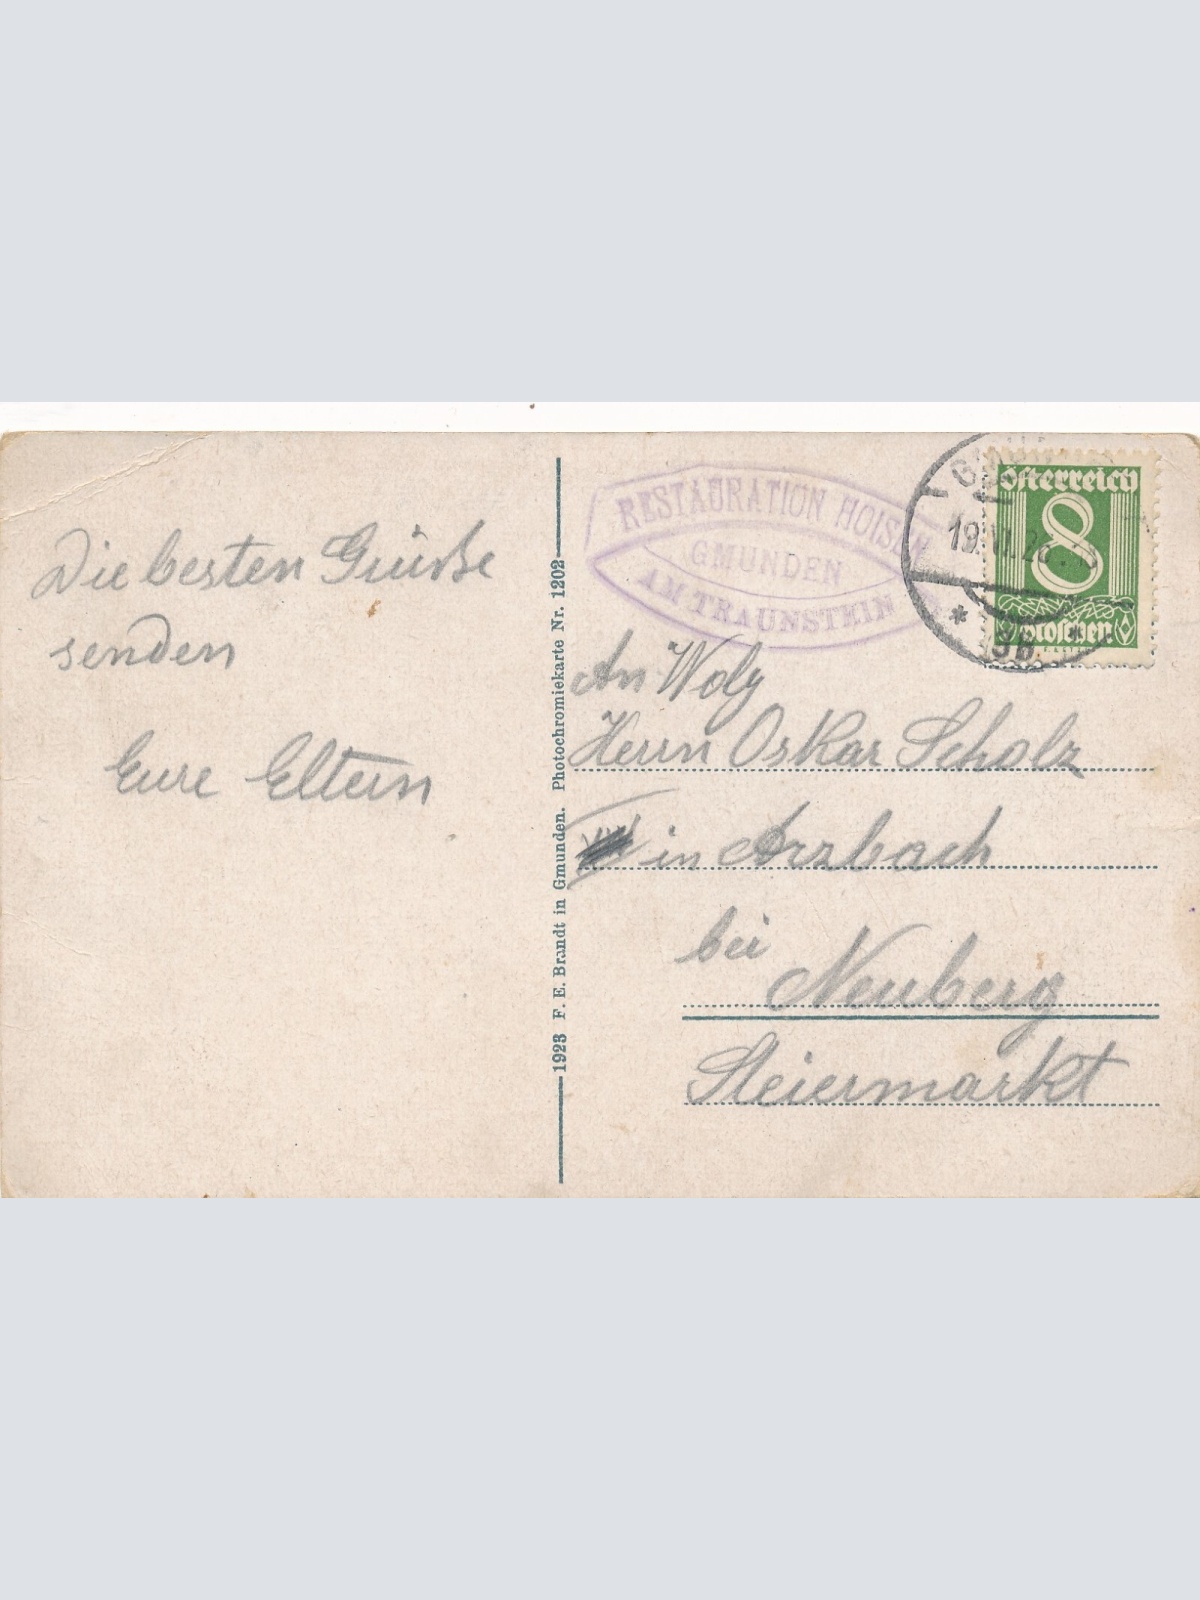 Die besten Grüße
senden
Eure Eltern
1923 F. E. Brandt in Gmunden. Photochromiekarte Nr. 1202
RESTAURATION HOISEN
GMUNDEN
AM TRAUNSTEIN
Österreich
8
Groschen
3b
An Wolg
Herrn Oskar Scholz
in Arzbach
bei
Neuberg
Steiermarkt